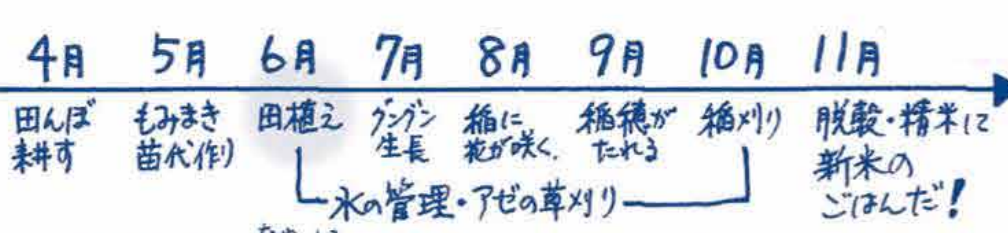 4月 5月 6月 7月 8月 9月 10月 11月
田んぼ
耕す
もみまき
苗代作り
田植え
グングン
生長
稲に
花が咲く.
稲穂が
たれる
稲刈り
脱穀・精米して
新米の
ごはんだ!
水の管理・アゼの草刈り